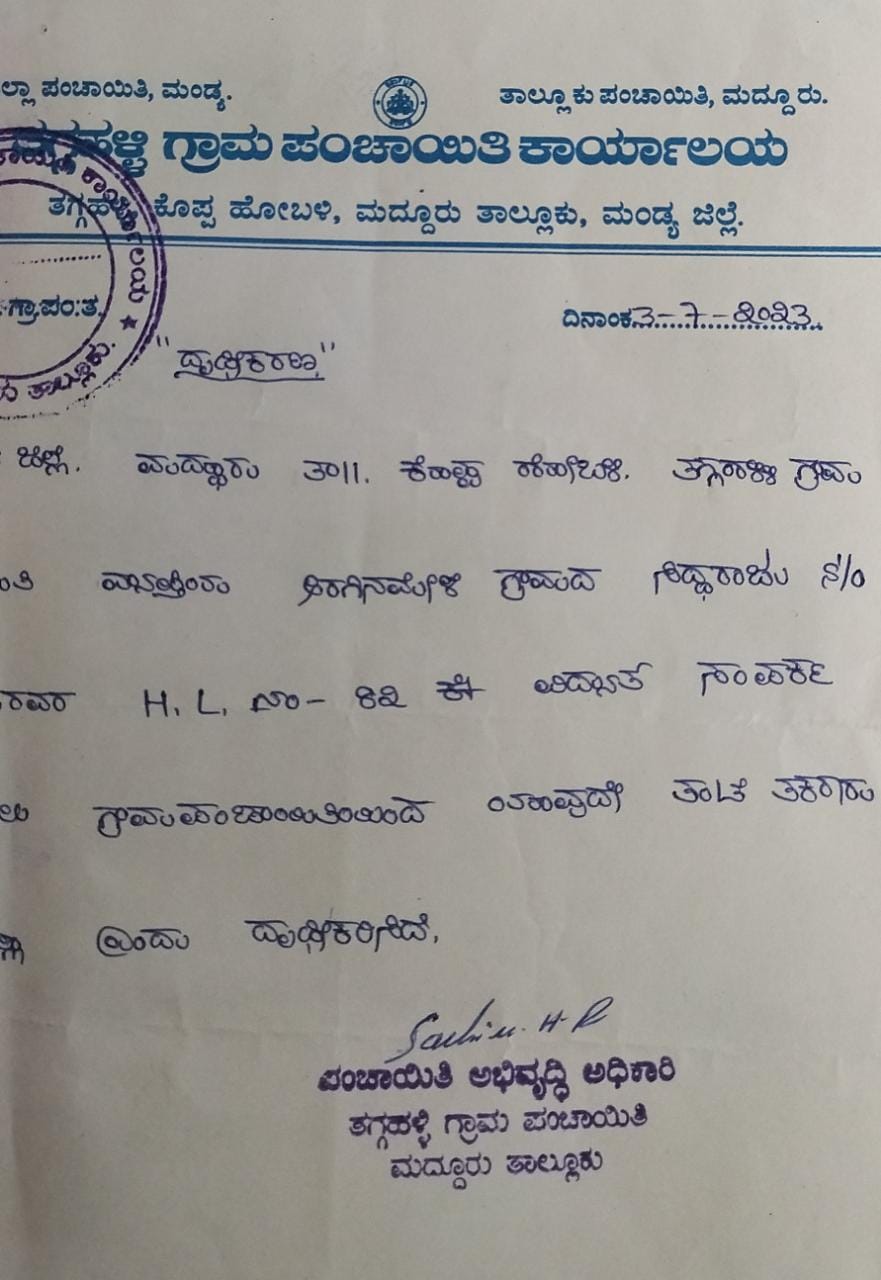 ಲ್ಲಾ ಪಂಚಾಯಿತಿ, ಮಂಡ್ಯ. ತಾಲ್ಲೂಕು ಪಂಚಾಯಿತಿ, ಮದ್ದೂರು.
ಗ್ರಾಮ ಪಂಚಾಯಿತಿ ಕಾರ್ಯಾಲಯ
ತಗ್ಗಹಳ್ಳಿ ಕೊಪ್ಪ ಹೋಬಳಿ, ಮದ್ದೂರು ತಾಲ್ಲೂಕು, ಮಂಡ್ಯ ಜಿಲ್ಲೆ.
ಕಾರ್ಯಾಲಯ ★ ತಾಲ್ಲೂಕು.
ಗ್ರಾ.ಪಂ:ತ. ದಿನಾಂಕ 3-7-೨೦೨3
"ದೃಢೀಕರಣ"
ಜಿಲ್ಲೆ. ಮದ್ದೂರು ತಾ||. ಕೊಪ್ಪ ಹೋಬಳಿ. ತಗ್ಗಹಳ್ಳಿ ಗ್ರಾಮ
ತಿ ಅರಗಿನಮೇಳೆ ಗ್ರಾಮದ ಸಿದ್ಧರಾಜು S/o
ರವರ H. L. ನಂ- ೫೨ ಕ್ಕೆ ವಿದ್ಯುತ್ ಸಂಪರ್ಕ
ಲು ಗ್ರಾಮಪಂಚಾಯಿತಿಯಿಂದ ಯಾವುದೇ ತಂಟೆ ತಕರಾರು
ಎಂದು ದೃಢೀಕರಿಸಿದೆ.
Sachin. H. R
ಪಂಚಾಯಿತಿ ಅಭಿವೃದ್ಧಿ ಅಧಿಕಾರಿ
ತಗ್ಗಹಳ್ಳಿ ಗ್ರಾಮ ಪಂಚಾಯಿತಿ
ಮದ್ದೂರು ತಾಲ್ಲೂಕು